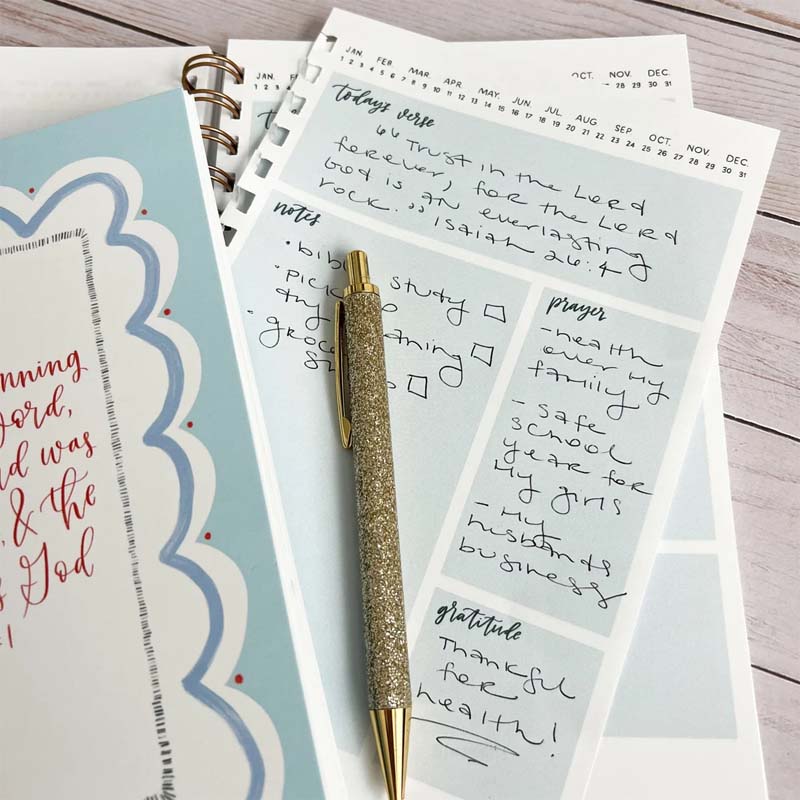 nning
Word,
nd was
& the
s God
:1
JAN.
JAN. FEB. MAR. APR. MAY. JUN. JUL. AUG SEP OCT. NOV. DEC.
1 2 3 4 5 6 7 8 9 10 11 12 13 14 15 16 17 18 19 20 21 22 23 24 25 26 27 28 29 30 31
OCT. NOV. DEC.
28 29 30 31
today's verse
“Trust in the Lord
forever, for the Lord
God is an everlasting
rock.” Isaiah 26:4
notes
• bible study
• pick up
dry cleaning
• grocery
prayer
- health
over my
family
- safe
school
year for
my girls
- my
husbands
business
gratitude
Thankful
for
health!